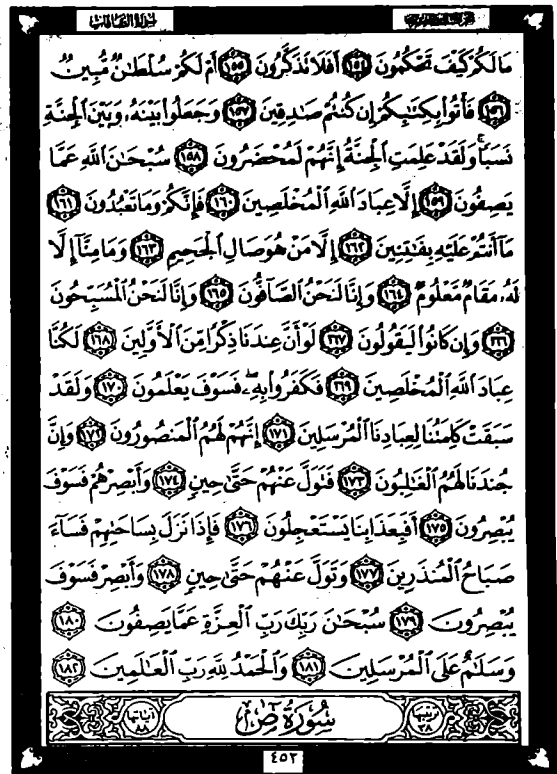 سورة الصافات
مَا لَكُمْ كَيْفَ تَحْكُمُونَ ١٥٤ أَفَلَا تَذَكَّرُونَ ١٥٥ أَمْ لَكُمْ سُلْطَانٌ مُّبِينٌ
١٥٦ فَأْتُوا بِكِتَابِكُمْ إِن كُنتُمْ صَادِقِينَ ١٥٧ وَجَعَلُوا بَيْنَهُ وَبَيْنَ الْجِنَّةِ
نَسَبًا ۚ وَلَقَدْ عَلِمَتِ الْجِنَّةُ إِنَّهُمْ لَمُحْضَرُونَ ١٥٨ سُبْحَانَ اللَّهِ عَمَّا
يَصِفُونَ ١٥٩ إِلَّا عِبَادَ اللَّهِ الْمُخْلَصِينَ ١٦٠ فَإِنَّكُمْ وَمَا تَعْبُدُونَ ١٦١
مَا أَنتُمْ عَلَيْهِ بِفَاتِنِينَ ١٦٢ إِلَّا مَنْ هُوَ صَالِ الْجَحِيمِ ١٦٣ وَمَا مِنَّا إِلَّا
لَهُ مَقَامٌ مَّعْلُومٌ ١٦٤ وَإِنَّا لَنَحْنُ الصَّافُّونَ ١٦٥ وَإِنَّا لَنَحْنُ الْمُسَبِّحُونَ
١٦٦ وَإِن كَانُوا لَيَقُولُونَ ١٦٧ لَوْ أَنَّ عِندَنَا ذِكْرًا مِّنَ الْأَوَّلِينَ ١٦٨ لَكُنَّا
عِبَادَ اللَّهِ الْمُخْلَصِينَ ١٦٩ فَكَفَرُوا بِهِ ۖ فَسَوْفَ يَعْلَمُونَ ١٧٠ وَلَقَدْ
سَبَقَتْ كَلِمَتُنَا لِعِبَادِنَا الْمُرْسَلِينَ ١٧١ إِنَّهُمْ لَهُمُ الْمَنصُورُونَ ١٧٢ وَإِنَّ
جُندَنَا لَهُمُ الْغَالِبُونَ ١٧٣ فَتَوَلَّ عَنْهُمْ حَتَّىٰ حِينٍ ١٧٤ وَأَبْصِرْهُمْ فَسَوْفَ
يُبْصِرُونَ ١٧٥ أَفَبِعَذَابِنَا يَسْتَعْجِلُونَ ١٧٦ فَإِذَا نَزَلَ بِسَاحَتِهِمْ فَسَاءَ
صَبَاحُ الْمُنذَرِينَ ١٧٧ وَتَوَلَّ عَنْهُمْ حَتَّىٰ حِينٍ ١٧٨ وَأَبْصِرْ فَسَوْفَ
يُبْصِرُونَ ١٧٩ سُبْحَانَ رَبِّكَ رَبِّ الْعِزَّةِ عَمَّا يَصِفُونَ ١٨٠
وَسَلَامٌ عَلَى الْمُرْسَلِينَ ١٨١ وَالْحَمْدُ لِلَّهِ رَبِّ الْعَالَمِينَ ١٨٢
ترتيبها ٣٨ سُورَةُ صٓ آياتها ٨٨
٤٥٢